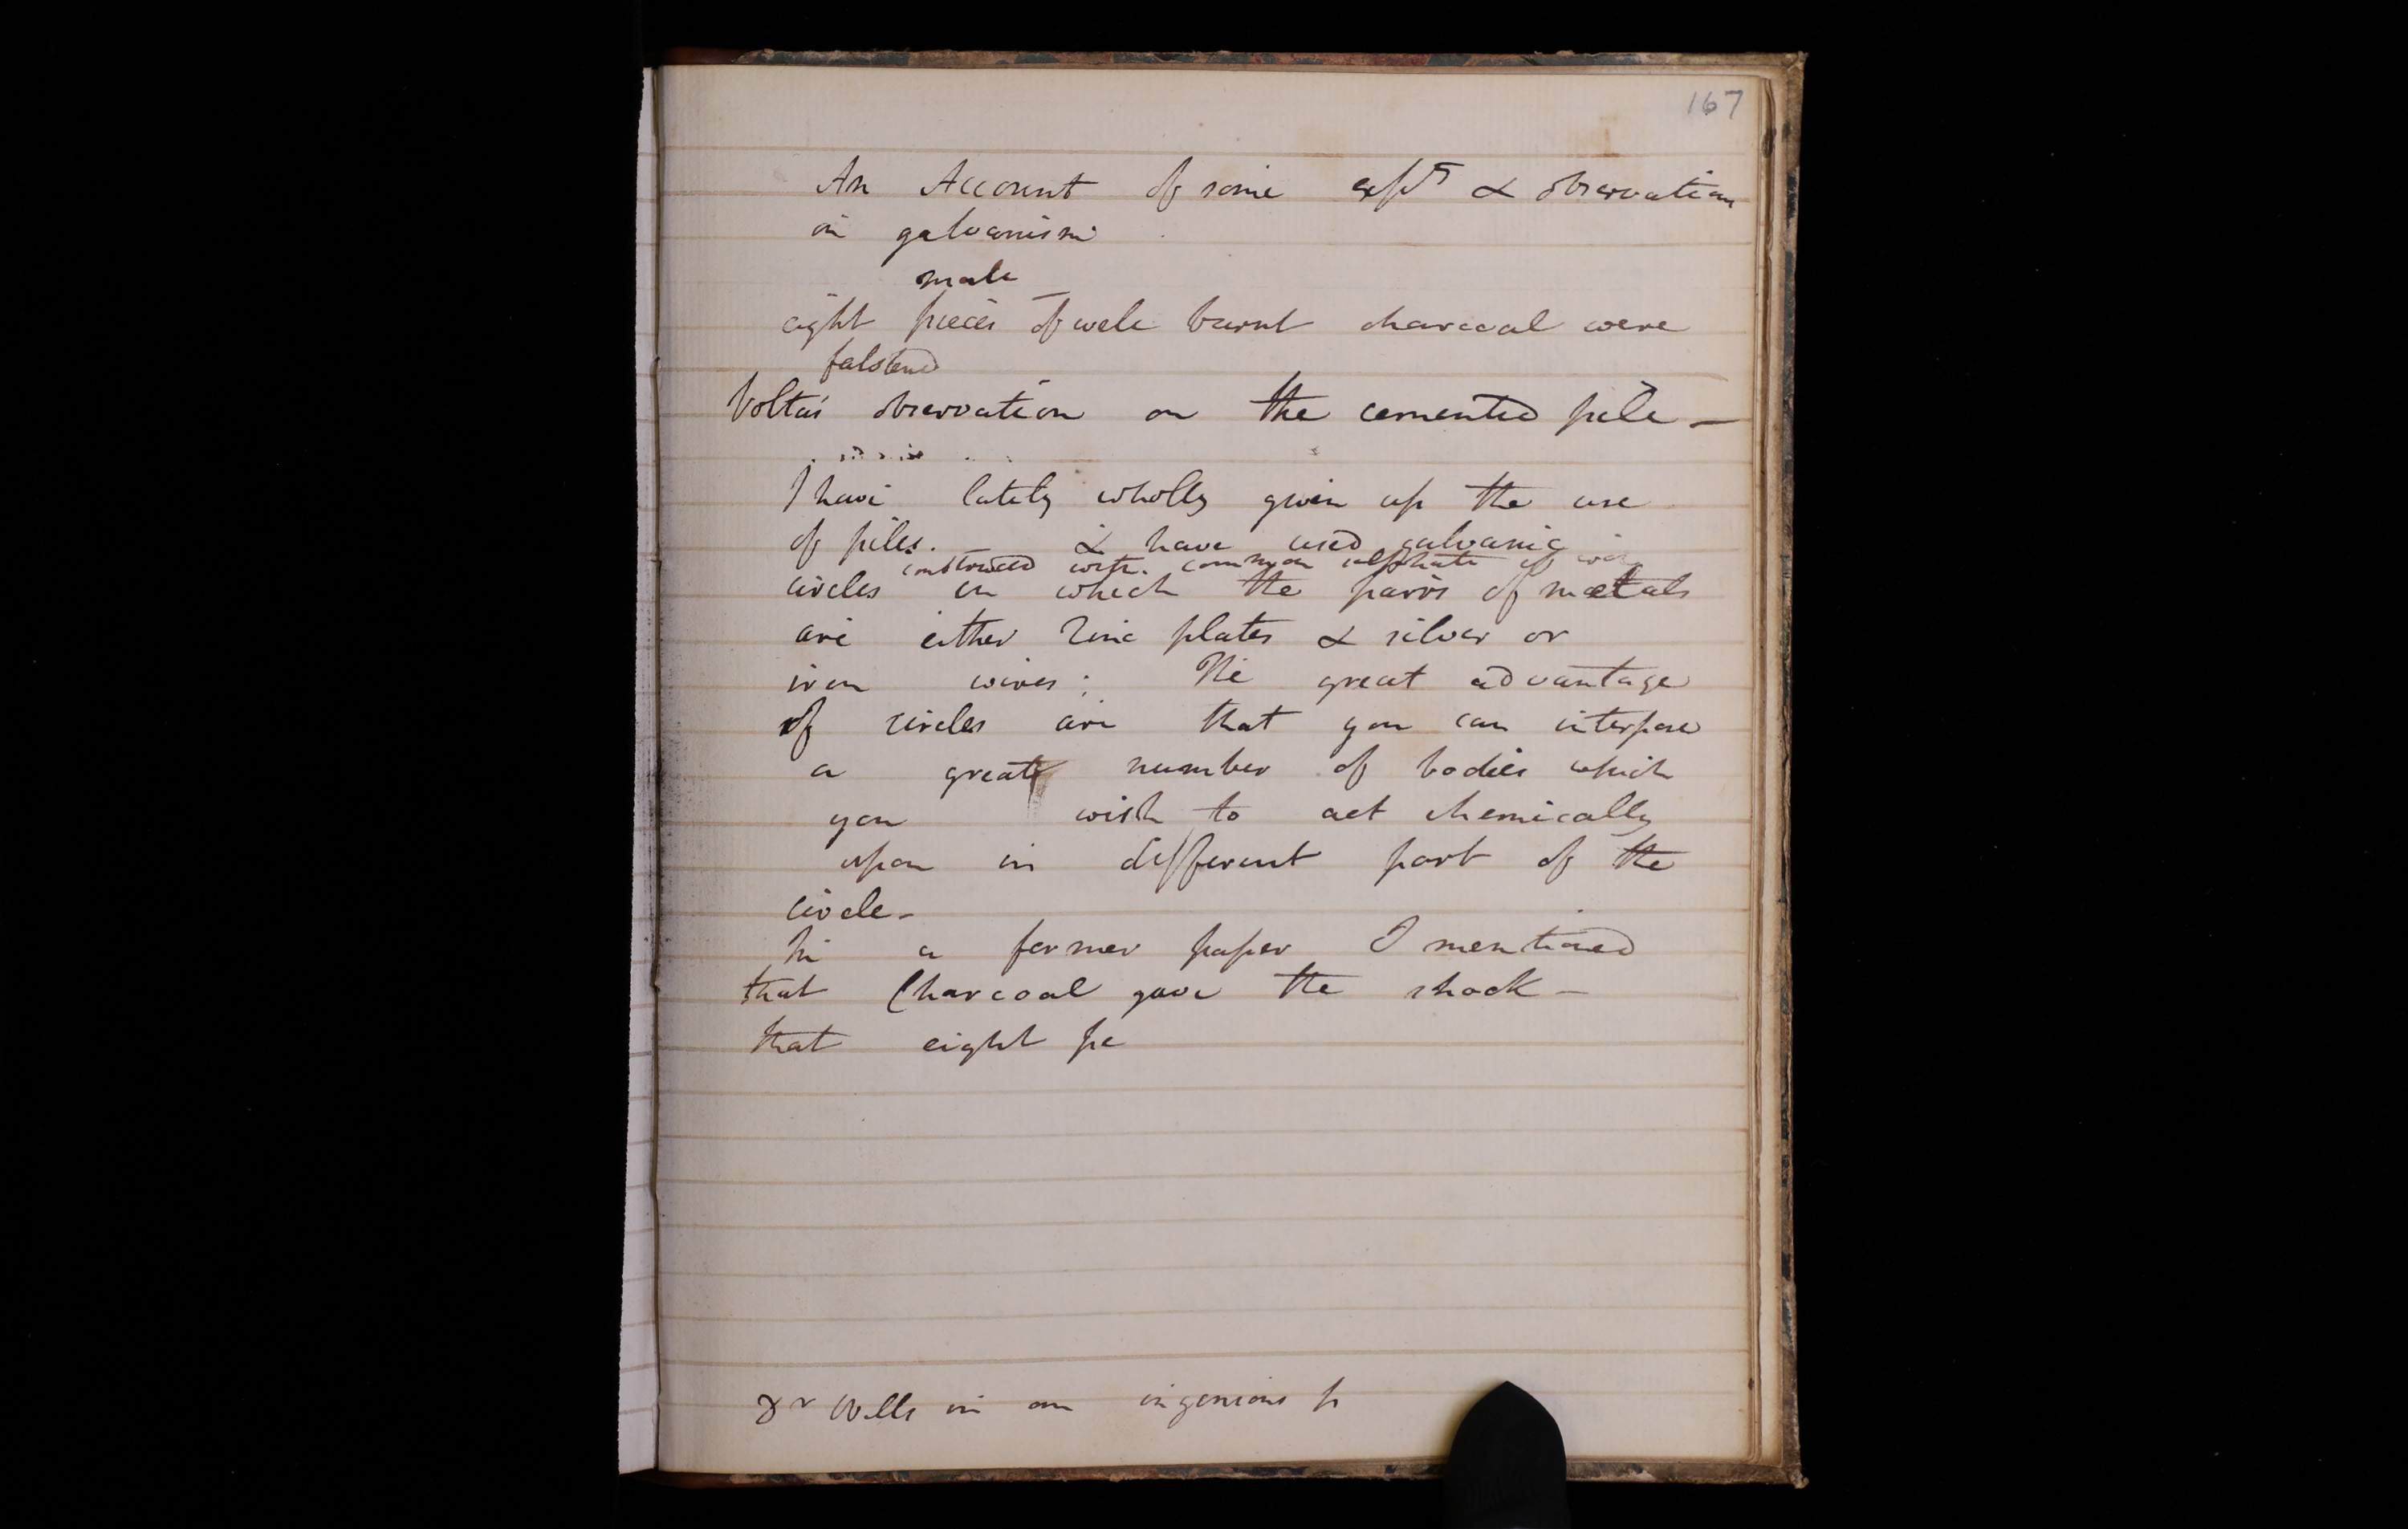 167
An Account of some expts & observation
in galvanism
male
eight pieces of well burnt charcoal were
fastened
Volta's observation on the cemented pile -
I have lately wholly given up the use
of piles. & have used galvanic
constructed with common sulphate of iron
circles in which the pairs of metals
are either Zinc plates & silver or
iron wires: The great advantage
of circles are that you can interpose
a great number of bodies which
you wish to act chemically
upon in different part of the
circle-
In a former paper I mentioned
that Charcoal gave the shock -
that eight pe
Dr Wells in an ingenious p